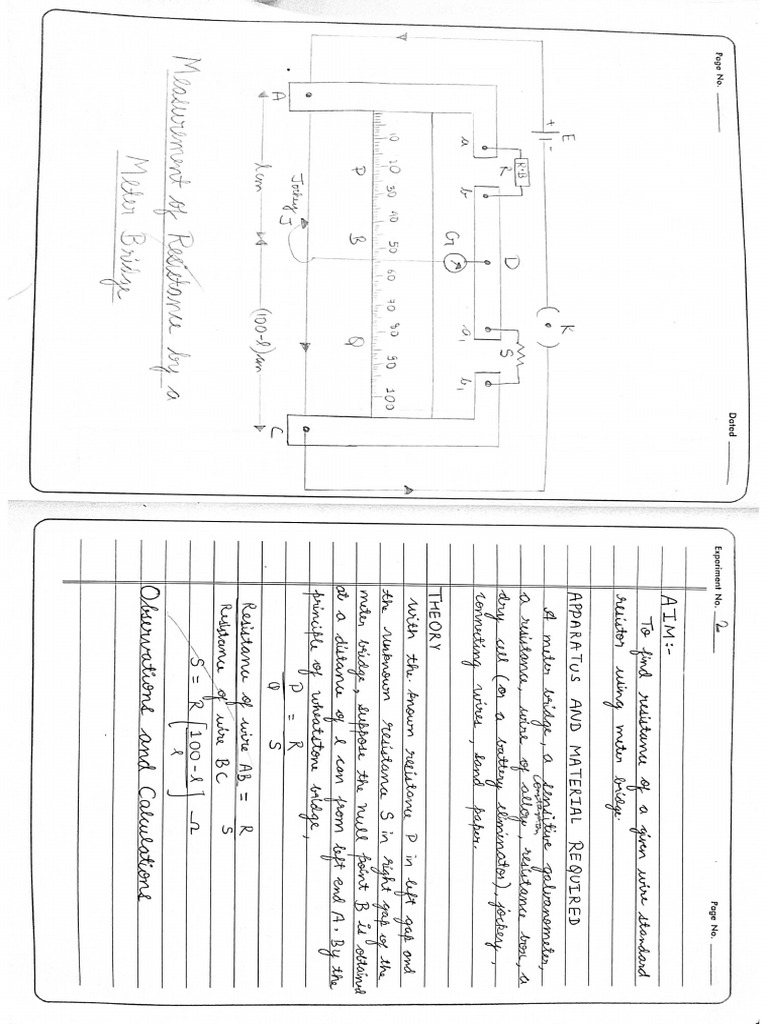 Page No.
Dated
E
+ -
K
( • )
R·B
R
S
D
a
b
a₁
b₁
G
10 20 30 40 50 60 70 80 90 100
P
B
Q
Jockey J
A
C
l cm
(100-l)cm
Measurement of Resistance by a
Meter Bridge
Experiment No. 2
Page No.
AIM:-
To find resistance of a given wire standard
resistor using meter bridge.
APPARATUS AND MATERIAL REQUIRED
A meter bridge, a sensitive galvanometer,
constantan
a resistance, wire of alloy, resistance box, a
dry cell (or a battery eliminator), jockery,
connecting wires, sand paper.
THEORY
with the known resistance P in left gap and
the unknown resistance S in right gap of the
meter bridge, suppose the null point B is obtained
at a distance of l can from left end A. By the
principle of wheatstone bridge,
P = R
Q S
Resistance of wire AB = R
Resistance of wire BC S
S = R [100-l] Ω
l
Observations and Calculations